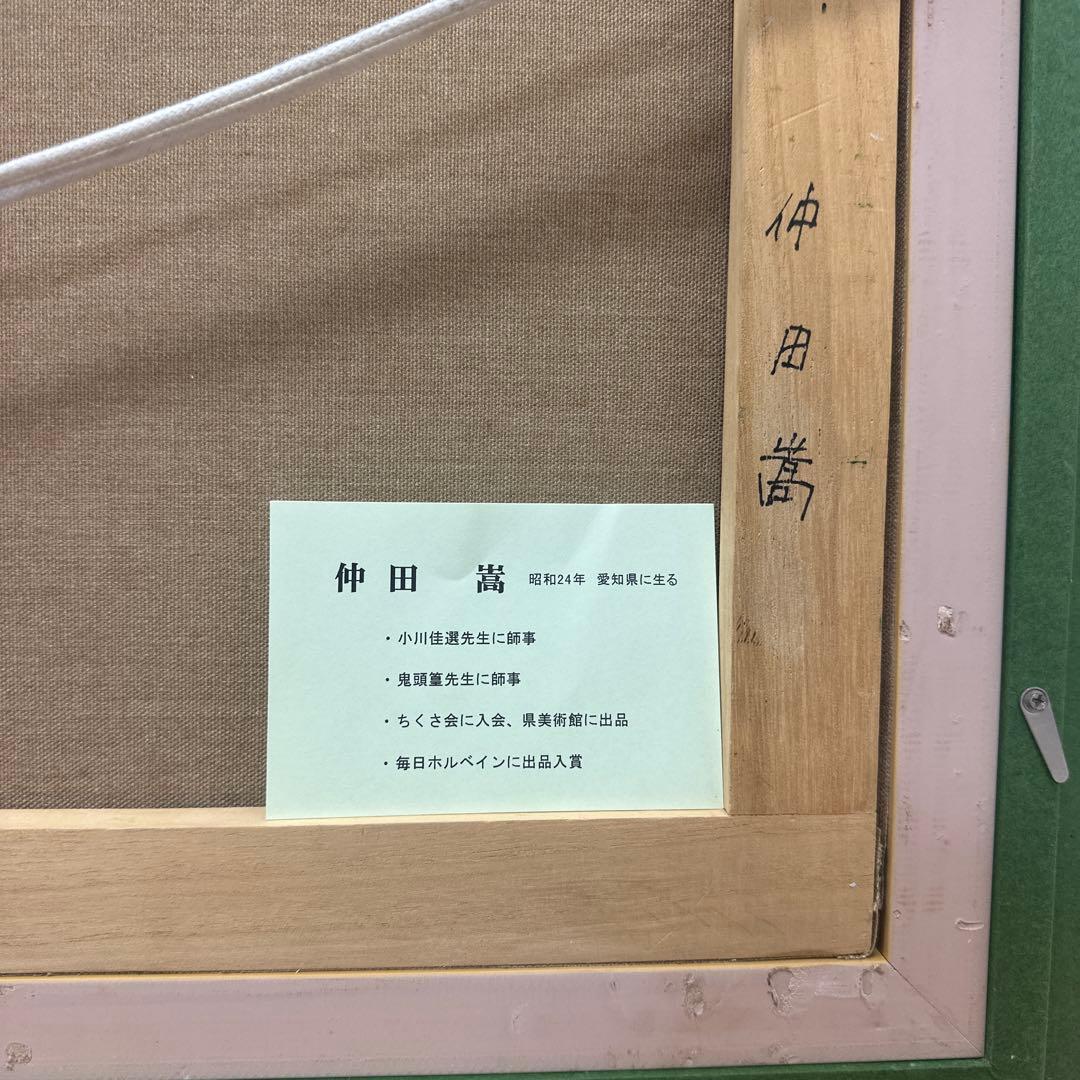 仲田嵩
仲田 嵩 昭和24年 愛知県に生る
・小川佳選先生に師事
・鬼頭篁先生に師事
・ちくさ会に入会、県美術館に出品
・毎日ホルベインに出品入賞